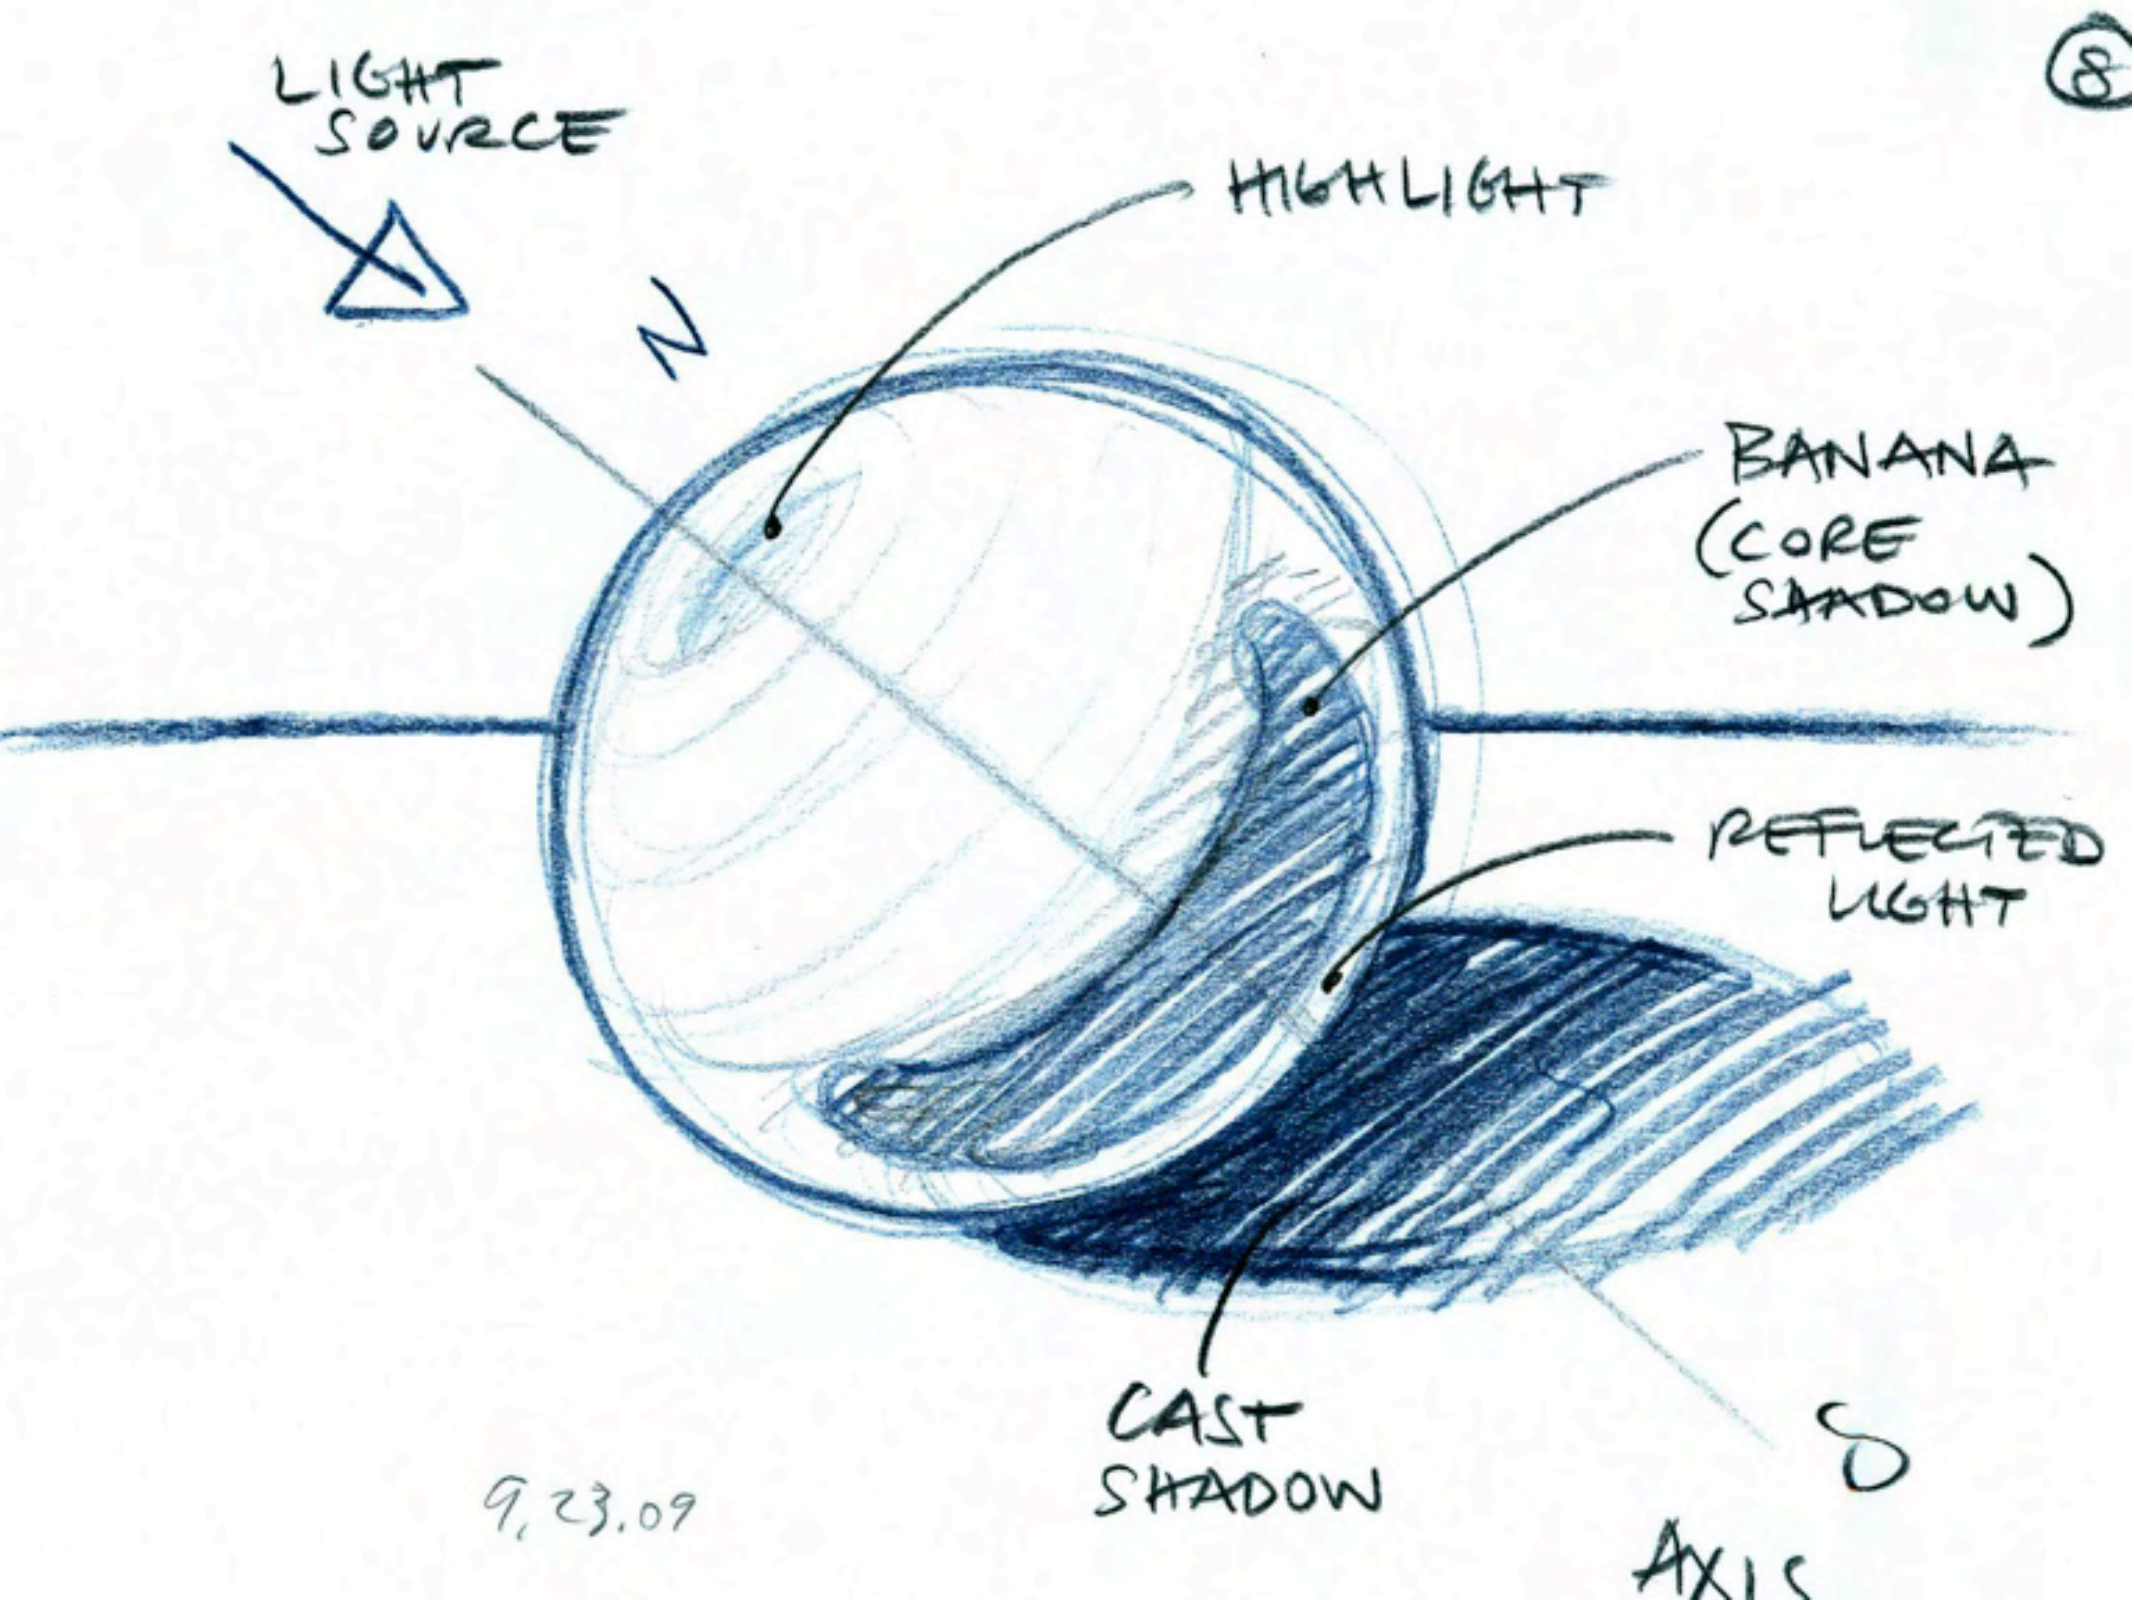 8
LIGHT
SOURCE
HIGHLIGHT
N
BANANA
(CORE
SHADOW)
REFLECTED
LIGHT
CAST
SHADOW
S
9.23.09
AXIS